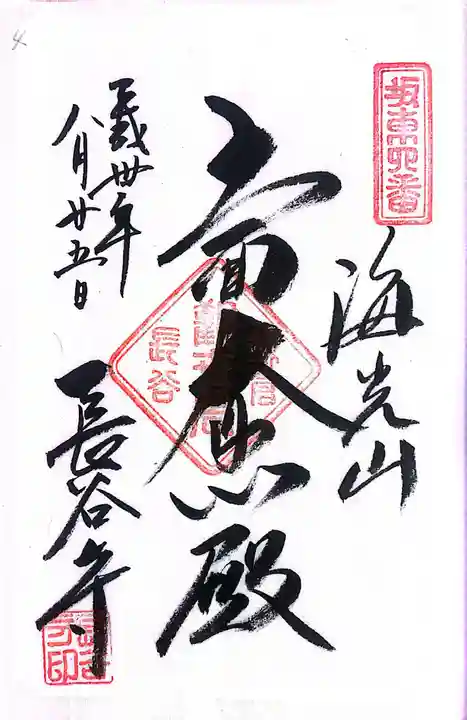 坂東四番
海光山
十一面大悲殿
長谷
平成卅年
八月廿五日
長谷寺